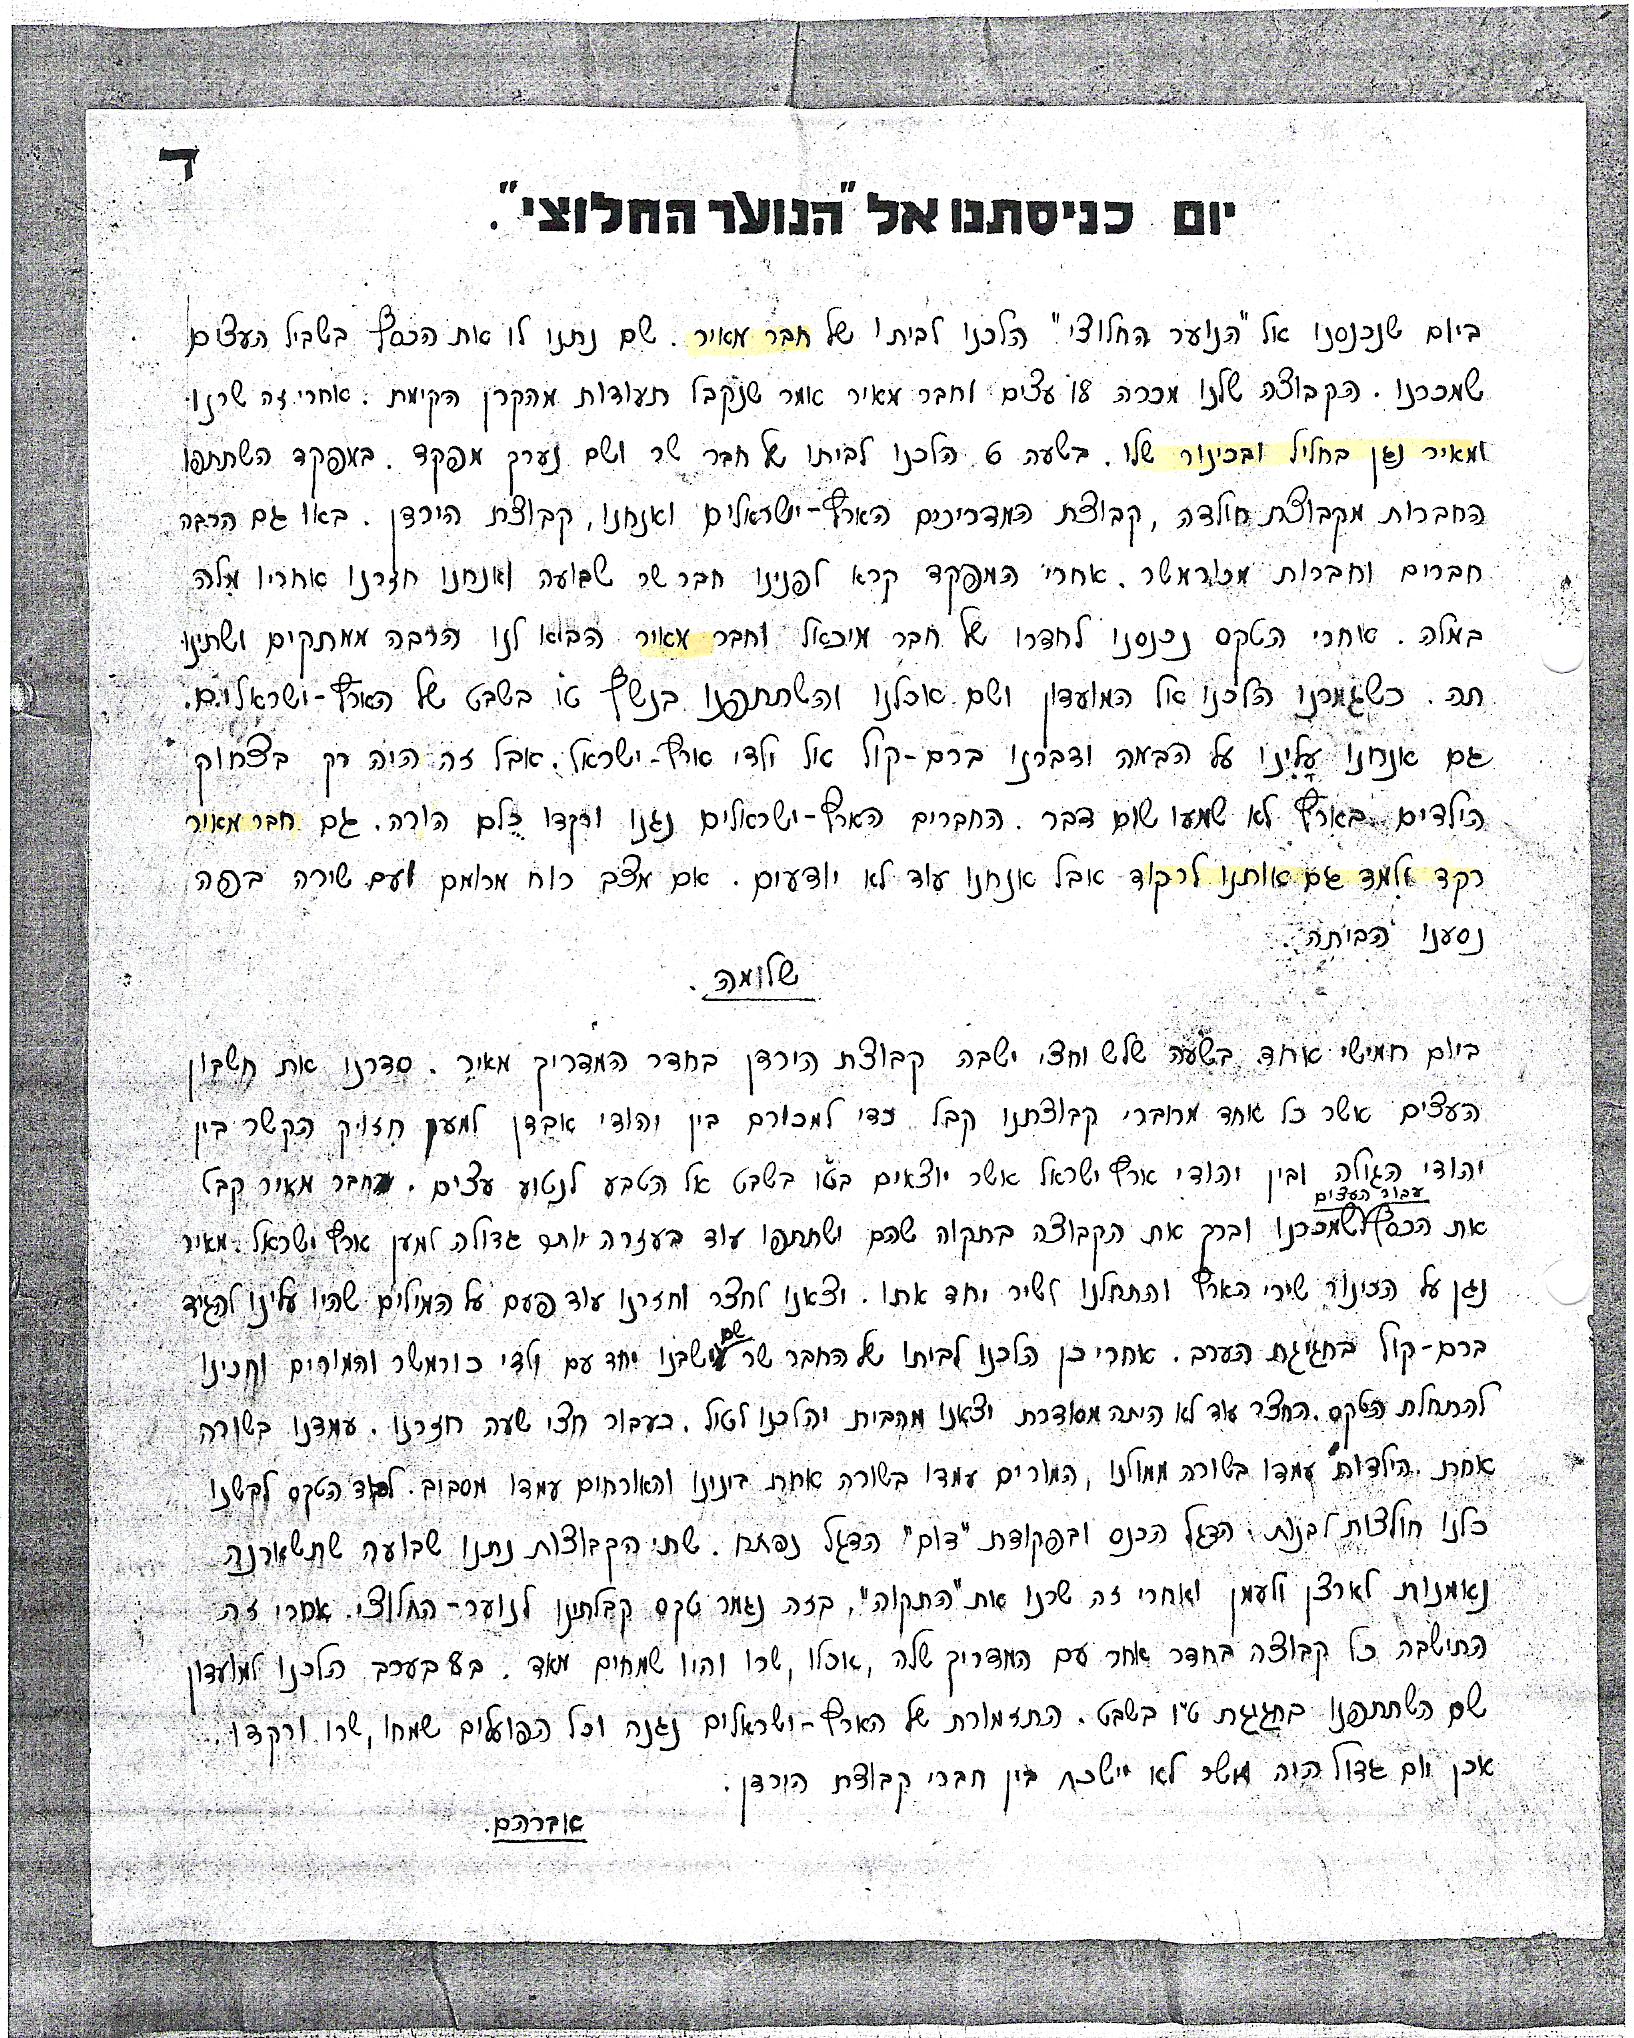 ד
יום כניסתנו אל "הנוער החלוצי".
ביום שנכנסנו אל "הנוער החלוצי" הלכנו לביתו של חבר מאיר. שם נתנו לו את הכסף בשביל העצים
שמכרנו. הקבוצה שלנו מכרה 18 עצים וחבר מאיר אמר שנקבל תעודות מהקרן הקימת. אחרי זה שרנו
ומאיר נגן בחליל ובכינור שלו. בשעה 6 הלכנו לביתו של חבר שר ושם נערך מפקד. במפקד השתתפו
החברות מקבוצת חולדה, קבוצת המדריכים הארץ-ישראלים ואנחנו, קבוצת הירדן. באו גם הרבה
חברים וחברות מכורמשר. אחרי המפקד קרא לפנינו חבר שר שבועה ואנחנו חזרנו אחריו מלה
במלה. אחרי הטקס נכנסנו לחדרו של חבר מיכאל וחבר מאיר הביא לנו הרבה ממתקים ושתינו
תה. כשגמרנו הלכנו אל המועדון ושם אכלנו והשתתפנו בנשף טו בשבט של הארץ-ישראלים.
גם אנחנו עלינו על הבמה ודברנו ברם-קול אל ילדי ארץ-ישראל. אבל זה היה רק בצחוק
הילדים בארץ לא שמעו שום דבר. החברים הארץ-ישראלים נגנו ורקדו כלם הורה. גם חבר מאיר
רקד ולמד גם אותנו לרקוד אבל אנחנו עוד לא יודעים. אם מצב רוח מרומם ועם שירה בפה
נסענו הביתה.
שלומה.
ביום חמישי אחד בשעה שלש וחצי ישבה קבוצת הירדן בחדר המדריך מאיר. סדרנו את חשבון
העצים אשר כל אחד מחברי קבוצתנו קבל כדי למכורם בין יהודי אבדן למען חזוק הקשר בין
יהודי הגולה ובין יהודי ארץ ישראל אשר יוצאים בטו בשבט אל הטבע לנטוע עצים. חבר מאיר קבל
את הכסף עבור העצים שמכרנו וברך את הקבוצה בתקוה שהם ישתתפו עוד בעזרה יותר גדולה למען ארץ ישראל. מאיר
נגן על הכינור שירי הארץ והתחלנו לשיר יחד אתו. יצאנו לחצר וחזרנו עוד פעם על המילים שהיו עלינו להגיד
ברם-קול בחגיגת הערב. אחרי כן הלכנו לביתו של החבר שר שם ישבנו יחד עם ילדי כורמשר והמורים וחכינו
להתחלת הטקס. החצר עוד לא היתה מסודרת יצאנו מהבית והלכנו לטיל. כעבור חצי שעה חזרנו. עמדנו בשורה
אחת. הילדות עמדו בשורה ממולנו, המורים עמדו בשורה אחת בינינו והאורחים עמדו מסבוב. הטקס לבשנו
כלנו חולצות לבנות. הדגל הכנס ובפקודת "דום" הדגל נפתח. שתי הקבוצות נתנו שבועה שתשארנה
נאמנות לארצן ולעמן ואחרי זה שרנו את "התקוה", בזה נגמר טקס קבלתינו לנוער-החלוצי. אחרי זה
התישבה כל קבוצה בחדר אחר עם המדריך שלה, אכלו, שרו והיו שמחים מאד. ב8 בערב הלכנו למועדון
שם השתתפנו בחגיגת ט"ו בשבט. התזמורת של הארץ-ישראלים נגנה וכל הפועלים שמחו, שרו ורקדו.
אכן יום גדול היה אשר לא ישכח בין חברי קבוצת הירדן.
אברהם.